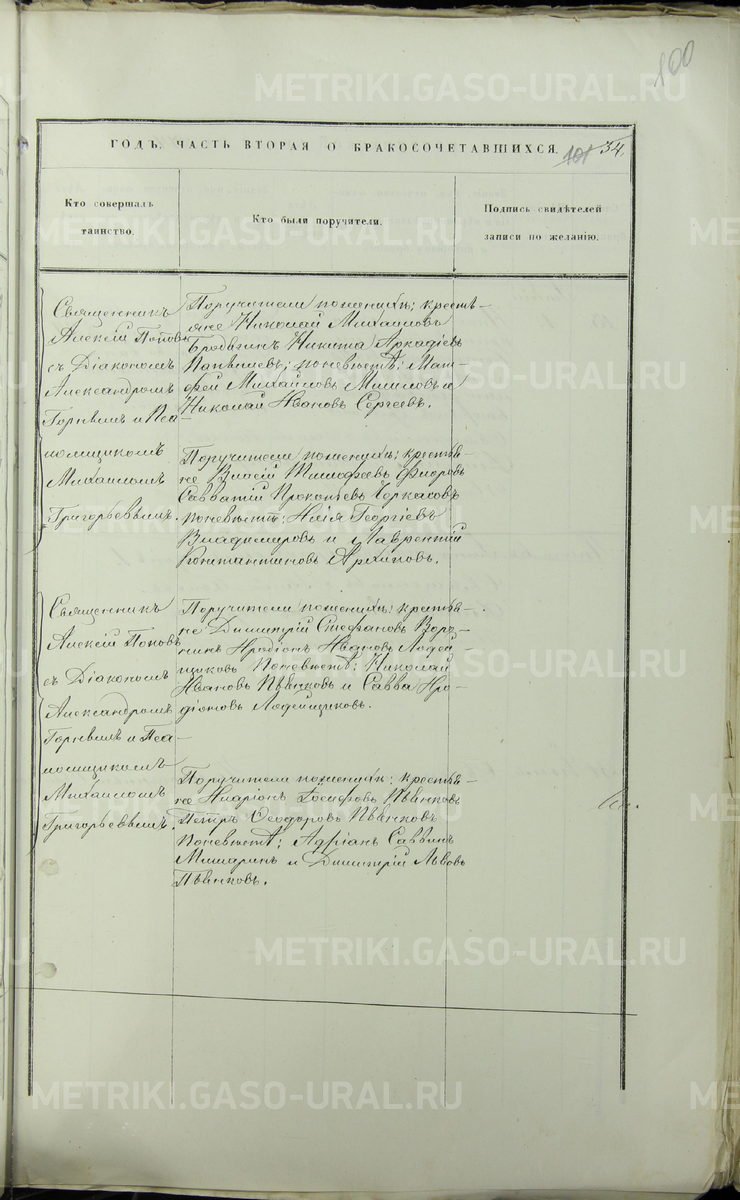 100
ГОДЪ, ЧАСТЬ ВТОРАЯ О БРАКОСОЧЕТАВШИХСЯ.
101 34.
Кто совершалъ
таинство.
Кто были поручители.
Подпись свидѣтелей
записи по желанію.
Священникъ
Алексій Поповъ
съ Діакономъ
Александромъ
Горнымъ и Пса-
ломщикомъ
Михаиломъ
Григорьевымъ.
Поручители по женихѣ; кресть-
яне Николай Михаиловъ
Бродягинъ Никита Аркадіевъ
по невѣстѣ: Мат-
фей Михайловъ и
Николай Ивановъ Сергеевъ.
Поручители по женихѣ; крестья-
не Власій Тимофеевъ Фирсовъ
Савватій Прокопьевъ Черкасовъ
по невѣстѣ: Илія Георгіевъ
Владимировъ и Лаврентій
Константиновъ Архиповъ.
Священникъ
Алексій Поповъ
съ Діакономъ
Александромъ
Горнымъ и Пса-
ломщикомъ
Михаиломъ
Григорьевымъ.
Поручители по женихѣ; крестья-
не Димитрій Стефановъ Воро-
нинъ Иродіонъ Ивановъ Лодей-
щиковъ По невѣстѣ: Николай
Ивановъ Пьянковъ и Савва Иро-
діоновъ Лодейщиковъ.
Поручители по женихѣ; крестья-
не Иларіонъ Іосифовъ Пьянковъ
Петръ Ѳеодоровъ Пьянковъ
По невѣстѣ; Адріанъ Саввинъ
Мишаринъ и Димитрій Львовъ
Пьянковъ.
METRIKI.GASO-URAL.RU